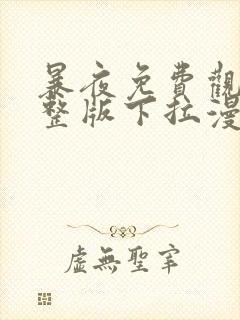 暴夜免費觀
整版下拉漫
虛無聖宰